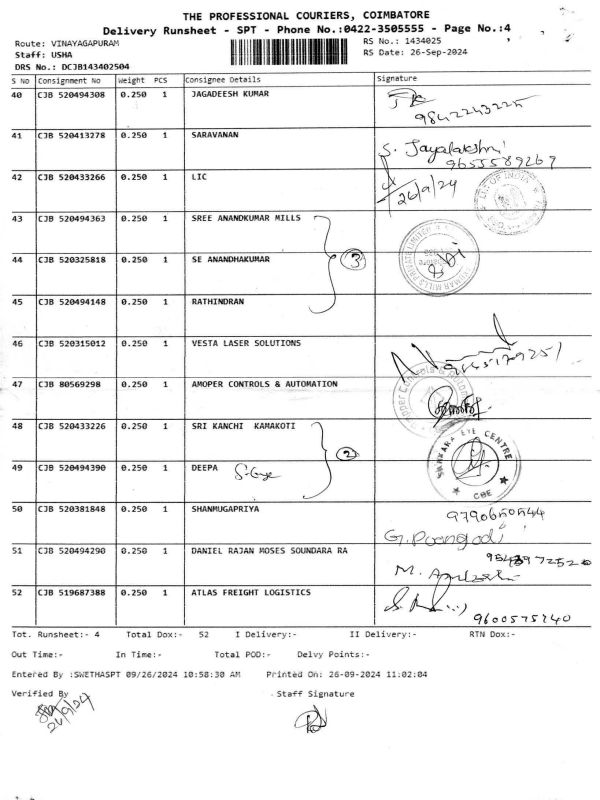 THE PROFESSIONAL COURIERS, COIMBATORE
Delivery Runsheet - SPT - Phone No.:0422-3505555 - Page No.:4
Route: VINAYAGAPURAM RS No.: 1434025
Staff: USHA RS Date: 26-Sep-2024
DRS No.: DCJB143402504
S No Consignment No Weight PCS Consignee Details Signature
40 CJB 520494308 0.250 1 JAGADEESH KUMAR
9842243225
41 CJB 520413278 0.250 1 SARAVANAN
S. Jayalakshmi
9655589267
42 CJB 520433266 0.250 1 LIC
26/9/24
LIC OF INDIA
43 CJB 520494363 0.250 1 SREE ANANDKUMAR MILLS
3
MILLS PRIVATE LIMITED
44 CJB 520325818 0.250 1 SE ANANDHAKUMAR
45 CJB 520494148 0.250 1 RATHINDRAN
46 CJB 520315012 0.250 1 VESTA LASER SOLUTIONS
47 CJB 80569298 0.250 1 AMOPER CONTROLS & AUTOMATION
48 CJB 520433226 0.250 1 SRI KANCHI KAMAKOTI
2
SANKARA EYE CENTRE
CBE
49 CJB 520494390 0.250 1 DEEPA
50 CJB 520381848 0.250 1 SHANMUGAPRIYA
9790650544
G. Poongodi
51 CJB 520494290 0.250 1 DANIEL RAJAN MOSES SOUNDARA RA
52 CJB 519687388 0.250 1 ATLAS FREIGHT LOGISTICS
9600575740
Tot. Runsheet:- 4 Total Dox:- 52 I Delivery:- II Delivery:- RTN Dox:-
Out Time:- In Time:- Total POD:- Delvy Points:-
Entered By :SWETHASPT 09/26/2024 10:58:30 AM Printed On: 26-09-2024 11:02:04
Verified By Staff Signature
26/9/24